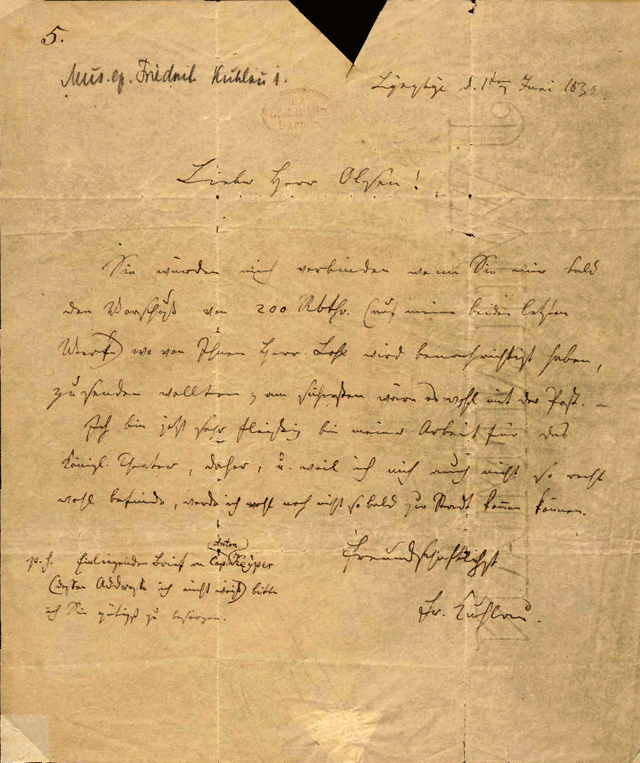 5.
Mus. ep. Friedrich Kuhlau 1.
Lyngbye d. 1ten Juni 1830
Lieber Herr Olsen!
Sie würden mich verbinden wenn Sie mir bald
den Vorschuß von 200 Rbthr. (auf meine beiden letzten
Werke) wovon Ihnen Herr Lose wird benachrichtigt haben,
zusenden wollten; am sichersten wäre es wohl mit der Post. —
Ich bin jetzt sehr fleißig bei meiner Arbeit für das
Königl. Theater, daher, u. weil ich mich auch nicht so recht
wohl befinde, werde ich wohl noch nicht so bald zur Stadt kommen können.
Freundschaftlichst
Fr. Kuhlau.
p. s. Einliegenden Brief an Anton Keyper
(dessen Addresse ich nicht weiß) bitte
ich Sie gütigst zu besorgen.